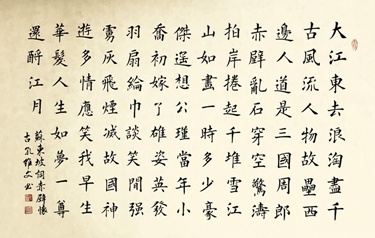 大江東去浪淘盡千
古風流人物故壘西
邊人道是三國周郎
赤壁亂石穿空驚濤
拍岸捲起千堆雪江
山如畫一時多少豪
傑遥想公瑾當年小
喬初嫁了雄姿英發
羽扇綸巾談笑間強
虜灰飛煙滅故國神
遊多情應笑我早生
華髮人生如夢一尊
還酹江月
蘇東坡詞赤壁懷
古孔維文书